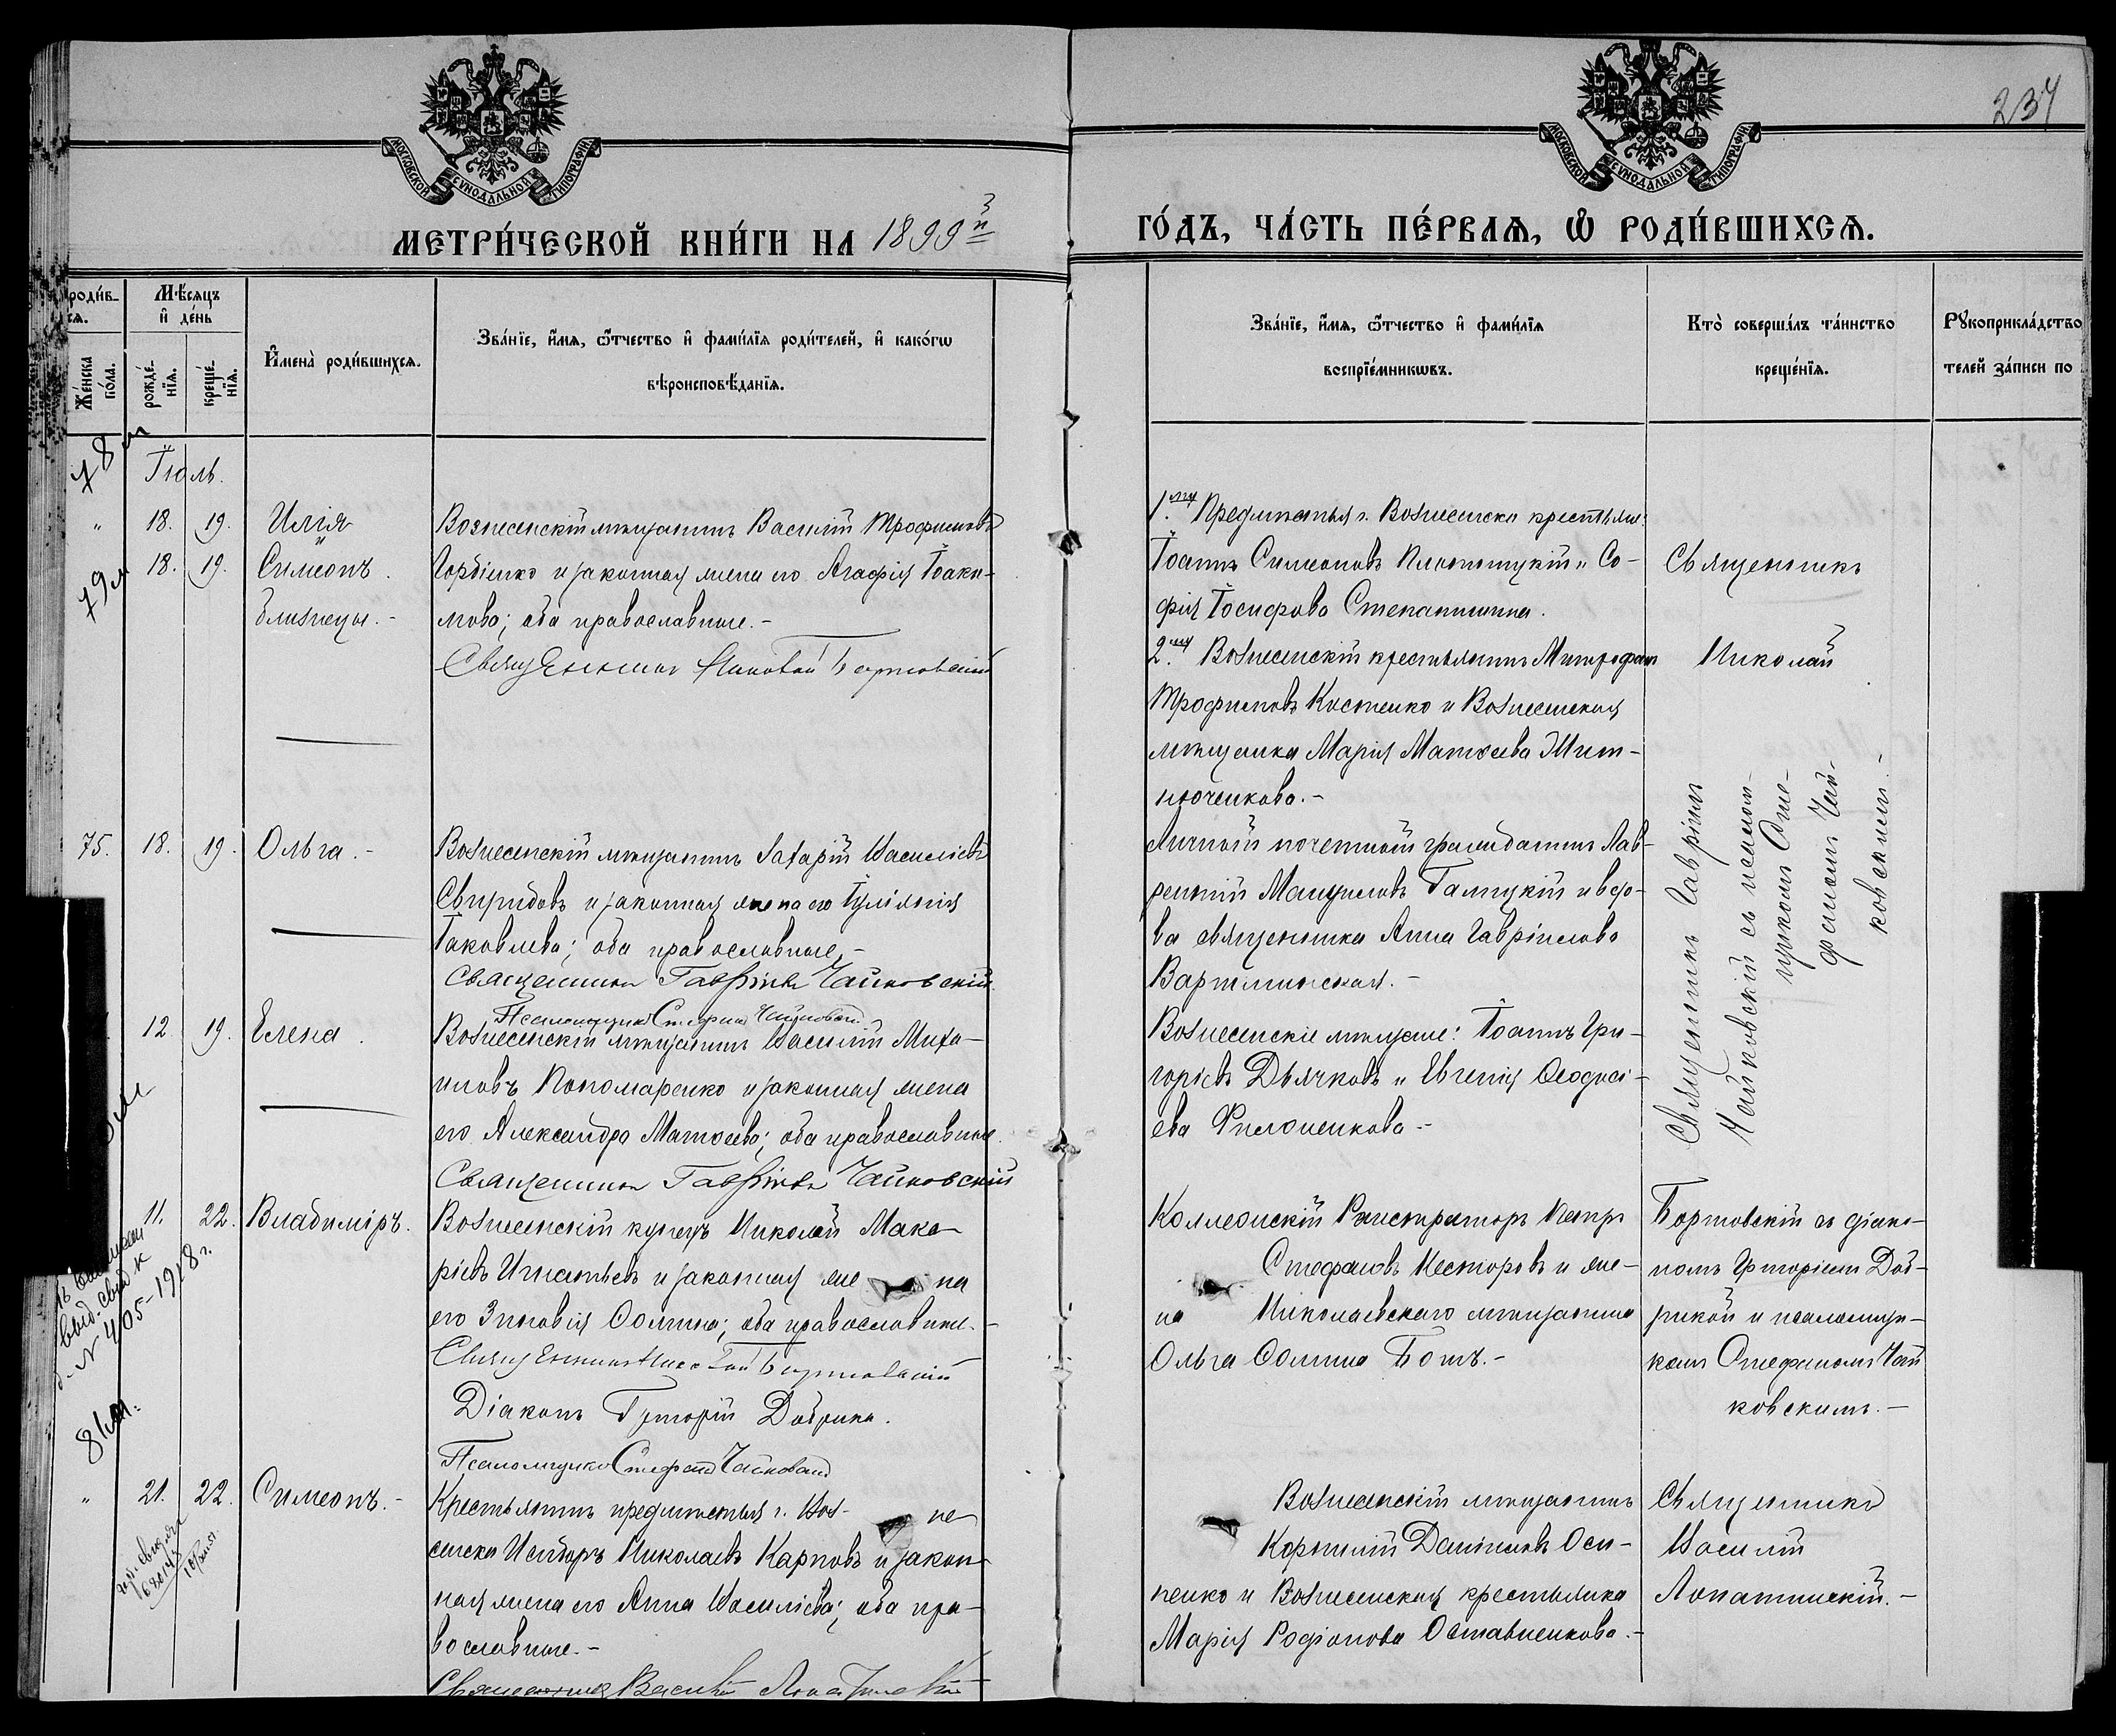 237
МОСКОВСКОЙ СѴНОДАЛЬНОЙ ТИПОГРАФІИ
МОСКОВСКОЙ СѴНОДАЛЬНОЙ ТИПОГРАФІИ
МЕТРИ́ЧЕСКОЙ КНИ́ГИ НА 1899й
ГО́ДЪ, ЧА́СТЬ ПЕ́РВАѦ, Ѡ҆ РОДИ́ВШИХСѦ.
роди́в-
сѧ.
Же́нска по́ла.
Мѣ́сяцъ и҆ де́нь
рожде́-нїѧ.
креще́-нїѧ.
И҆мена̀ роди́вшихсѧ.
Зва́нїе, и҆́мѧ, ѻ҆́тчество и҆ фами́лїѧ роди́телей, и҆ како́гѡ
вѣроисповѣ́данїѧ.
Зва́нїе, и҆́мѧ, ѻ҆́тчество и҆ фами́лїѧ
воспрїе́мникѡвъ.
Кто̀ соверша́лъ та́инство
креще́нїѧ.
Рꙋкоприкла́дство
телей за́писи по
78 м
Іюль.
" 18. 19. Илія
79 м 18. 19. Симеонъ.
близнецы.-
Вознесенскій мѣщанинъ Василій Трофимовъ
Горбенко и законная жена его Агафія Іоаки-
мова; оба православные.-
Священникъ Николай Бортовскій
1.му Предмѣстья г. Вознесенска крестьяне:
Іоаннъ Симеоновъ и Со-
фія Іосифова Степанишина.
2.му Вознесенскій крестьянинъ Митрофанъ
Трофимовъ Костенко и Вознесенская
мѣщанка Марія Матѳеева Жит-
нюченкова.-
Священникъ
Николай
75. 18. 19. Ольга.-
Вознесенскій мѣщанинъ Захарій Василіевъ
Свиридовъ и законная жена его Іуліанія
Іаковлева; оба православные.-
Священникъ Гавріилъ Чайковскій
Псаломщикъ Стефанъ Чайковскій
Личный почетный гражданинъ Лав-
рентій Галицкій и вдо-
ва священника Анна Гавріилова
Вартминская.-
Священникъ Гавріилъ
Чайковскій съ псалом-
щикомъ Сте-
фаномъ Чай-
ковскимъ.-
12. 19. Елена.
Вознесенскій мѣщанинъ Василій Миха-
иловъ Пономаренко и законная жена
его Александра Матѳеева; оба православные.
Священникъ Гавріилъ Чайковскій
Вознесенскіе мѣщане: Іоаннъ Гри-
горіевъ Дьячковъ и Евгенія Ѳеодосі-
ева Филоненкова.-
11. 22. Владиміръ.
Вознесенскій купецъ Николай Мака-
ріевъ Игнатьевъ и законная же на
его Зиновія Ѳомина; оба православные.-
Священникъ Николай Бортовскій
Діаконъ Григорій Добрика.
Псаломщикъ Стефанъ Чайковскій
Коллежскій Регистраторъ Петръ
Стефановъ Несторовъ и же-
на Николаевскаго мѣщанина
Ольга Ѳомина Ботъ.-
Бортовскій съ діако-
номъ Григоріемъ Доб-
рикой и псаломщи-
комъ Стефаномъ Чай
ковскимъ.-
выд. свид. к
№ 405-1918 г.
81 м.
" 21. 22. Симеонъ.-
Крестьянинъ предмѣстья г. Воз- не
сенска Исидоръ Николаевъ Карповъ и закон-
ная жена его Анна Василіева; оба пра-
вославные.-
Священникъ Василій Лопатинскій
Вознесенскій мѣщанинъ
Корнилій Даніиловъ Оси-
пенко и Вознесенская крестьянка
Марія Родіонова Оставненкова.-
Священникъ
Василій
Лопатинскій.-